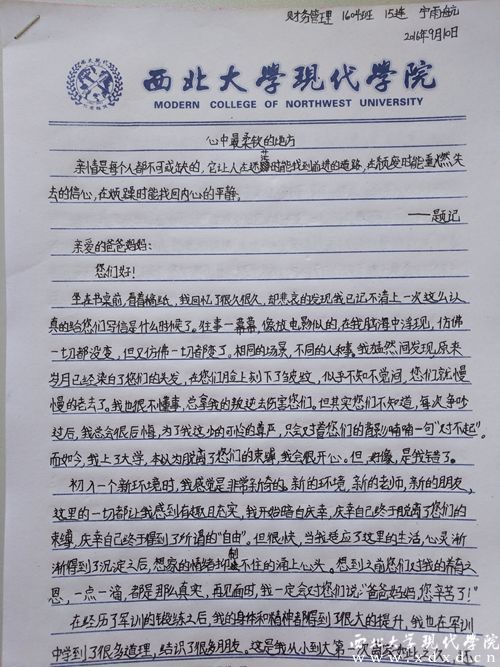 财务管理 1604班 15连 宁雨航
2016年9月10日
西北大学现代学院
MODERN COLLEGE OF NORTHWEST UNIVERSITY
心中最柔软的地方
亲情是每个人都不可或缺的,它让人在迷茫时能找到前进的道路,在颓废时能重燃失
去的信心,在烦躁时能找回内心的平静。
——题记
亲爱的爸爸妈妈:
您们好!
坐在书桌前,看着稿纸,我回忆了很久很久,却悲哀的发现我已记不清上一次这么认
真的给您们写信是什么时候了。往事一幕幕,像放电影似的,在我脑海中浮现,仿佛
一切都没变,但又仿佛一切都变了,相同的场景,不同的人和事。我猛然间发现,原来
岁月已经染白了您们的头发,在您们脸上刻下了皱纹,似乎不知不觉间,您们就慢
慢的老去了。我也很不懂事,总拿我的叛逆去伤害您们。但其实您们不知道,每次争吵
过后,我总会很后悔,为了我这少的可怜的尊严,只会对着您们的背影喃喃一句“对不起”。
而如今,我上了大学,本以为脱离了您们的束缚,我会很开心。但,好像,是我错了。
初入一个新环境时,我感觉是非常新奇的。新的环境,新的老师,新的朋友,
这里的一切都让我感到有趣且充实,我开始暗自庆幸,庆幸自己终于脱离了您们的
束缚,庆幸自己终于得到了所谓的“自由”。但很快,当我适应了这里的生活,心灵渐
渐得到了沉淀之后,想家的情绪抑制不住的涌上心头。想到之前您们对我的养育之
恩,一点一滴,都是那么真实,再见面时,我一定会对您们说:“爸爸妈妈,您辛苦了!”
在经历了军训的锻炼之后,我的身体和精神都得到了很大的提升,我也在军训
中学到了很多道理,结识了很多朋友。这是我从小到大第一次离家如此之久,
西北大学现代学院
xdxd.cn